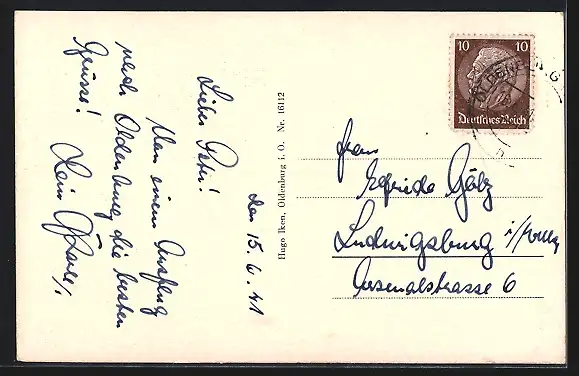 den 15.6.41
Lieber Peter!
Von einem Ausflug
nach Oldenburg die besten
Grüsse! Dein
Hugo Iken, Oldenburg i. O. Nr. 16112
10 10
Deutsches Reich
OLDENBURG
Frau
Elfriede Götz
Ludwigsburg
Arsenalstrasse 6